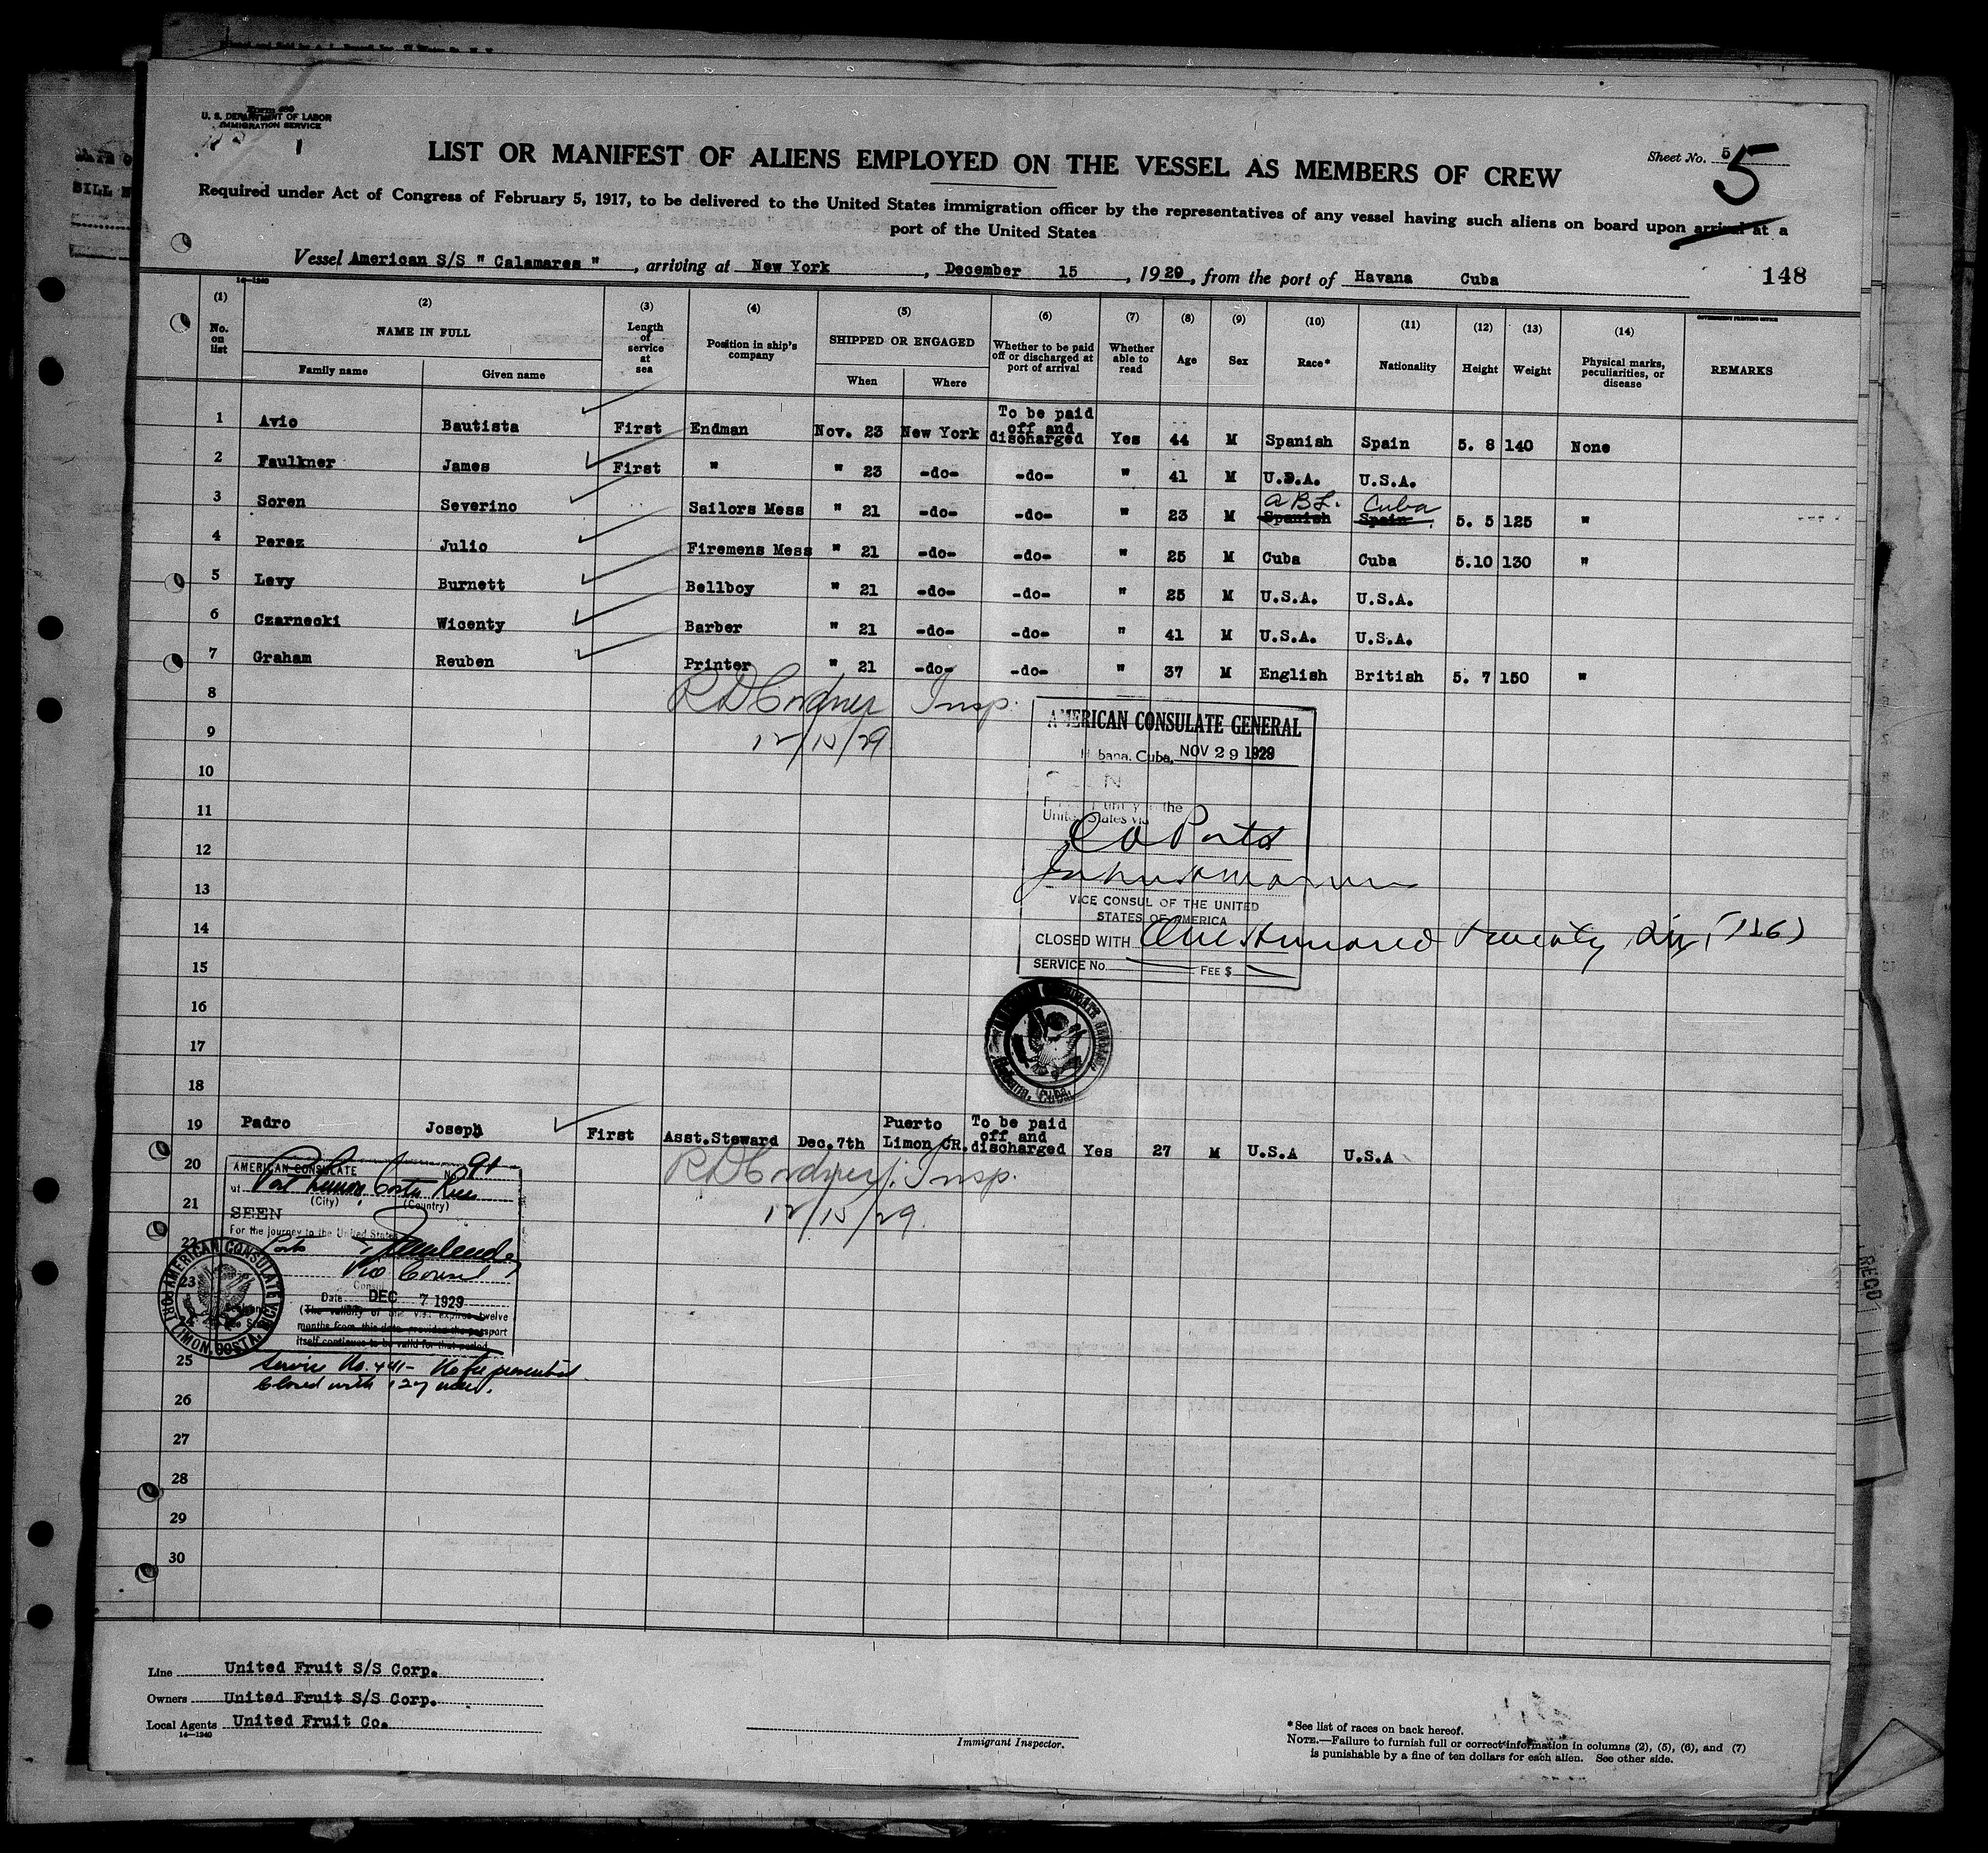 Form 689
U. S. DEPARTMENT OF LABOR
IMMIGRATION SERVICE
1
LIST OR MANIFEST OF ALIENS EMPLOYED ON THE VESSEL AS MEMBERS OF CREW
Sheet No. 5
5
Required under Act of Congress of February 5, 1917, to be delivered to the United States immigration officer by the representatives of any vessel having such aliens on board upon arrival at a
port of the United States
Vessel American S/S " Calamares " , arriving at New York , December 15 , 1929, from the port of Havana Cuba
148
14—1240
(1) (2) (3) (4) (5) (6) (7) (8) (9) (10) (11) (12) (13) (14)
No. on list NAME IN FULL Family name Given name Length of service at sea Position in ship's company SHIPPED OR ENGAGED When Where Whether to be paid off or discharged at port of arrival Whether able to read Age Sex Race* Nationality Height Weight Physical marks, peculiarities, or disease REMARKS
GOVERNMENT PRINTING OFFICE
1 Avio Bautista First Endman Nov. 23 New York To be paid off and discharged Yes 44 M Spanish Spain 5. 8 140 None
2 Faulkner James First " " 23 -do- -do- " 41 M U.S.A. U.S.A.
3 Soren Severino Sailors Mess " 21 -do- -do- " 23 M Spanish Spain Cuba 5. 5 125 "
4 Perez Julio Firemens Mess " 21 -do- -do- " 25 M Cuba Cuba 5.10 130 "
5 Levy Burnett Bellboy " 21 -do- -do- " 25 M U.S.A. U.S.A.
6 Czarnecki Wicenty Barber " 21 -do- -do- " 41 M U.S.A. U.S.A.
7 Graham Reuben Printer " 21 -do- -do- " 37 M English British 5. 7 150 "
8
R D Cordner Insp.
9
12/15/29
AMERICAN CONSULATE GENERAL
Habana, Cuba, NOV 29 1929
10
11
the
United States via
12
13
VICE CONSUL OF THE UNITED
STATES OF AMERICA
14
CLOSED WITH One Hundred twenty six (126)
15
SERVICE No. FEE $
16
17
18
19 Padro Joseph First Asst. Steward Dec. 7th Puerto Limon CR. To be paid off and discharged Yes 27 M U.S.A U.S.A
R D Cordner Insp.
12/15/29
20
AMERICAN CONSULATE No. 91
at Port Limon, Costa Rica
(City) (Country)
21
SEEN
For the journey to the United States
22
Vice Consul
Consul
23
Date DEC 7 1929
(The validity of this visa expires twelve
months from this date provided the passport
itself continues to be valid for that period
AMERICAN CONSULATE
PORT LIMON, COSTA RICA
25
Service No. 441- No fee prescribed
Closed with 127 men.
26
27
28
29
30
Line United Fruit S/S Corp.
Owners United Fruit S/S Corp.
Local Agents United Fruit Co.
14—1240
Immigrant Inspector.
*See list of races on back hereof.
NOTE.—Failure to furnish full or correct information in columns (2), (5), (6), and (7)
is punishable by a fine of ten dollars for each alien. See other side.
RECO